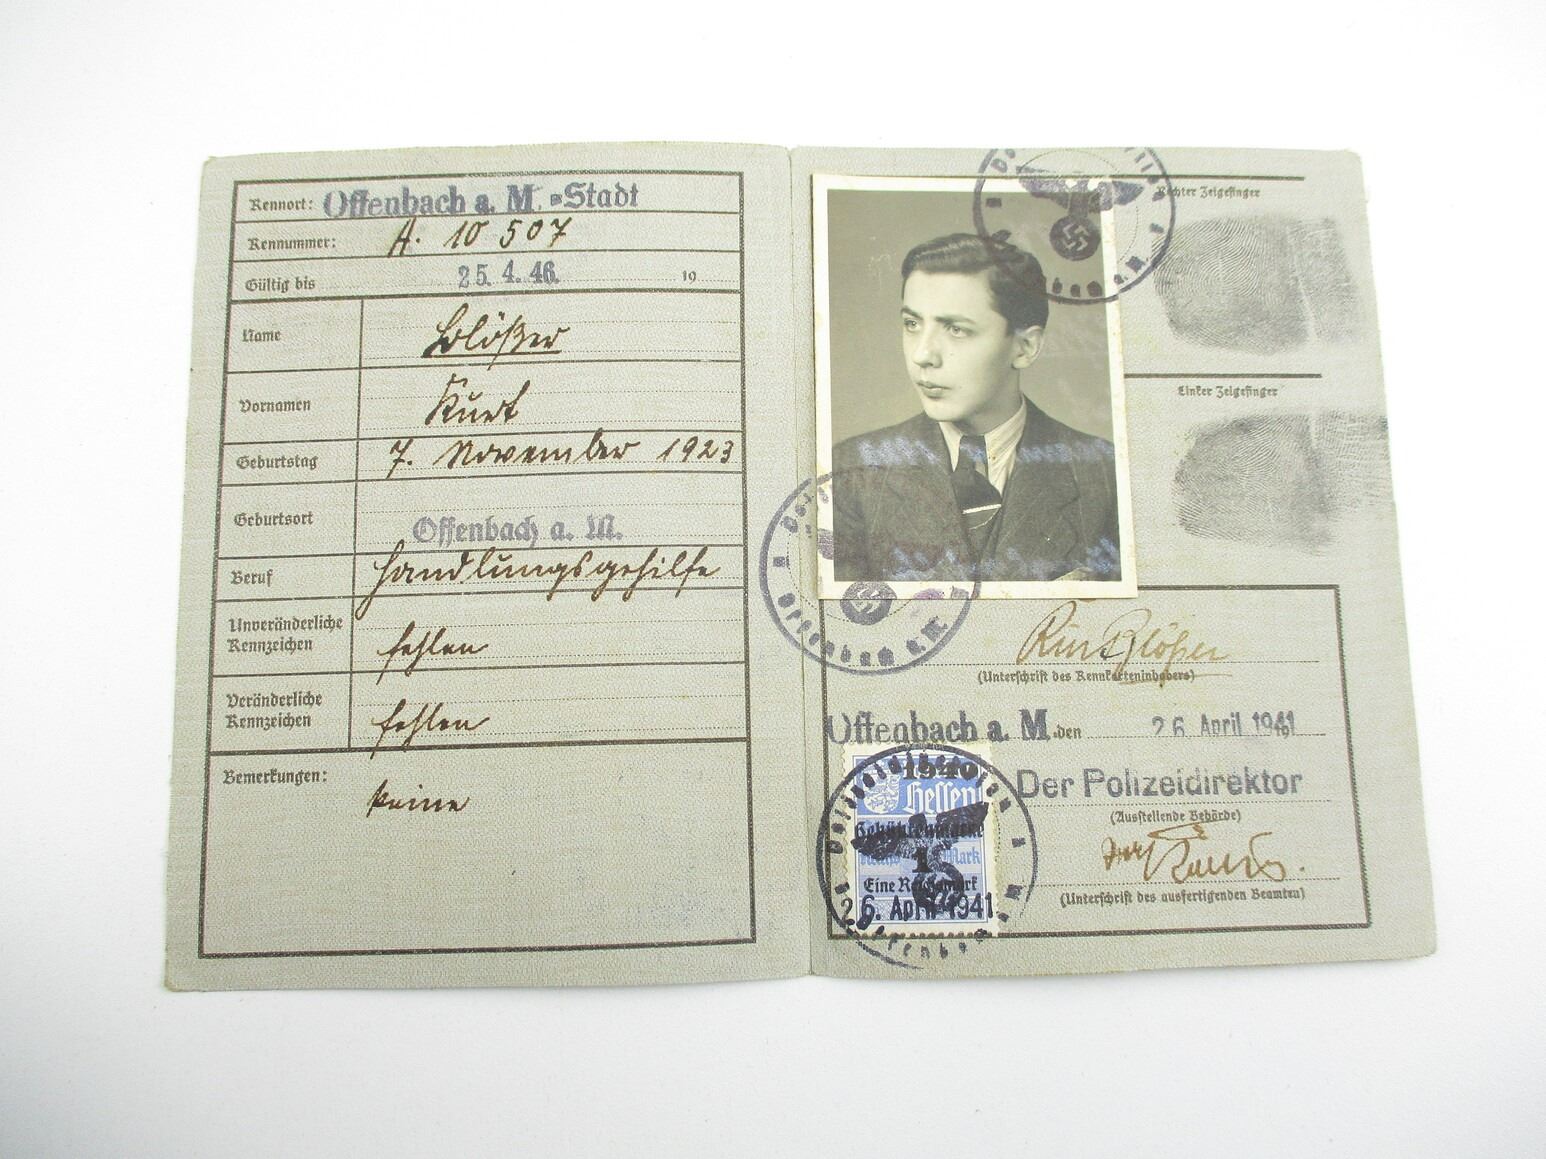 Kennort: Offenbach a. M.=Stadt
Kennummer: A. 10 507
Gültig bis 25. 4. 46. 19
Name Blößer
Vornamen Kurt
Geburtstag 7. November 1923
Geburtsort Offenbach a. M.
Beruf Handlungsgehilfe
Unveränderliche
Kennzeichen fehlen
Veränderliche
Kennzeichen fehlen
Bemerkungen: keine
Rechter Zeigefinger
Linker Zeigefinger
Kurt Blößer
(Unterschrift des Kennkarteninhabers)
Offenbach a. M., den 26. April 1941
Der Polizeidirektor
(Ausstellende Behörde)
(Unterschrift des ausfertigenden Beamten)
1940
Hessen
1
Eine Reichsmark
26. April 1941